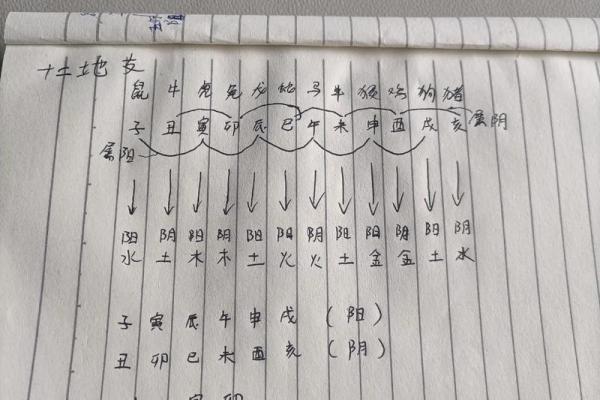 十二地支
鼠 牛 虎 兔 龙 蛇 马 牛 猴 鸡 狗 猪
子 丑 寅 卯 辰 巳 午 未 申 酉 戌 亥 属阴
属阳
阳 阴 阳 阴 阳 阳 阴 阳 阳 阴 阳 阴
水 土 木 木 土 火 火 土 金 金 土 水
子 寅 辰 午 申 戌 (阳)
丑 卯 巳 未 酉 亥 (阴)
寅 卯